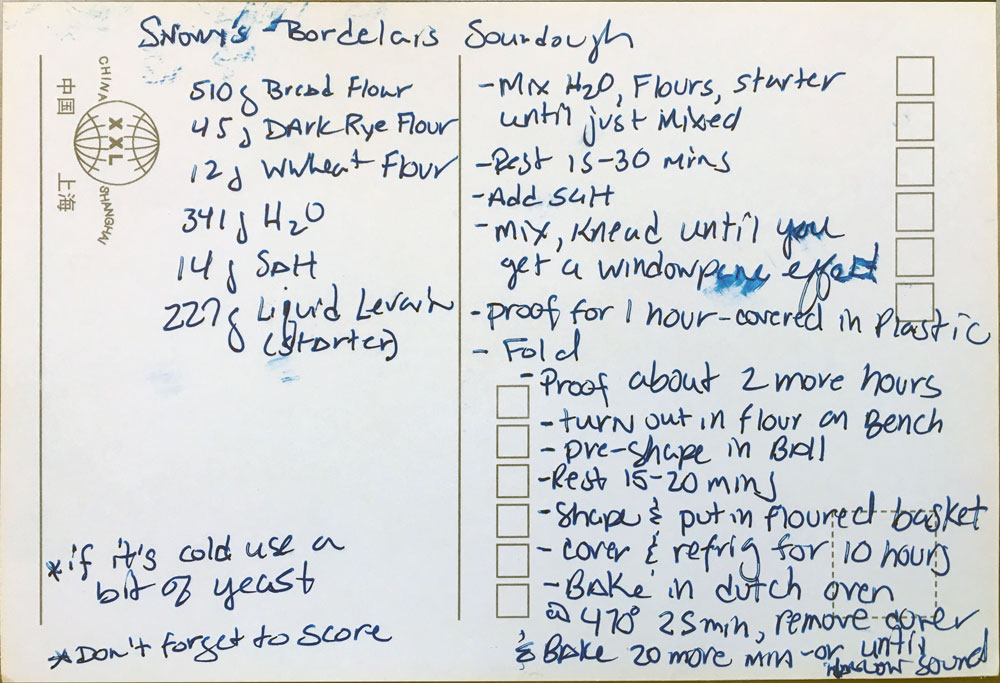 Snowy's Bordelais Sourdough
CHINA
中国
XXL
上海
SHANGHAI
510g Bread Flour
45g Dark Rye Flour
12g Wwheat Flour
341g H2O
14g Salt
227g Liquid Levain
(starter)
*if it's cold use a
bit of yeast
*Don't forget to score
-Mix H2O, Flours, starter
until just mixed
-Rest 15-30 mins
-Add salt
-Mix, Knead until you
get a windowpane effect
-proof for 1 hour-covered in plastic
- Fold
- Proof about 2 more hours
-turn out in flour on Bench
- pre-shape in Ball
-Rest 15-20 mins
-Shape & put in floured basket
- cover & refrig for 10 hours
- Bake in dutch oven
@ 470° 25 min, remove cover
& Bake 20 more min -or until
hollow sound